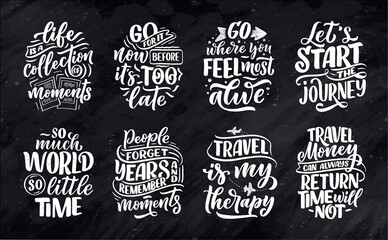 life
IS A
COLLECTION
OF
moments
GO
FOR IT
now
BEFORE
it's TOO
late
GO
where you
FEEL most
alive
Let's
START
THE
JOURNEY
SO
much
WORLD
SO little
TIME
People
FORGET
YEARS AND
REMEMBER
moments
TRAVEL
is my
therapy
TRAVEL
Money
CAN ALWAYS
RETURN
TIME will
NOT